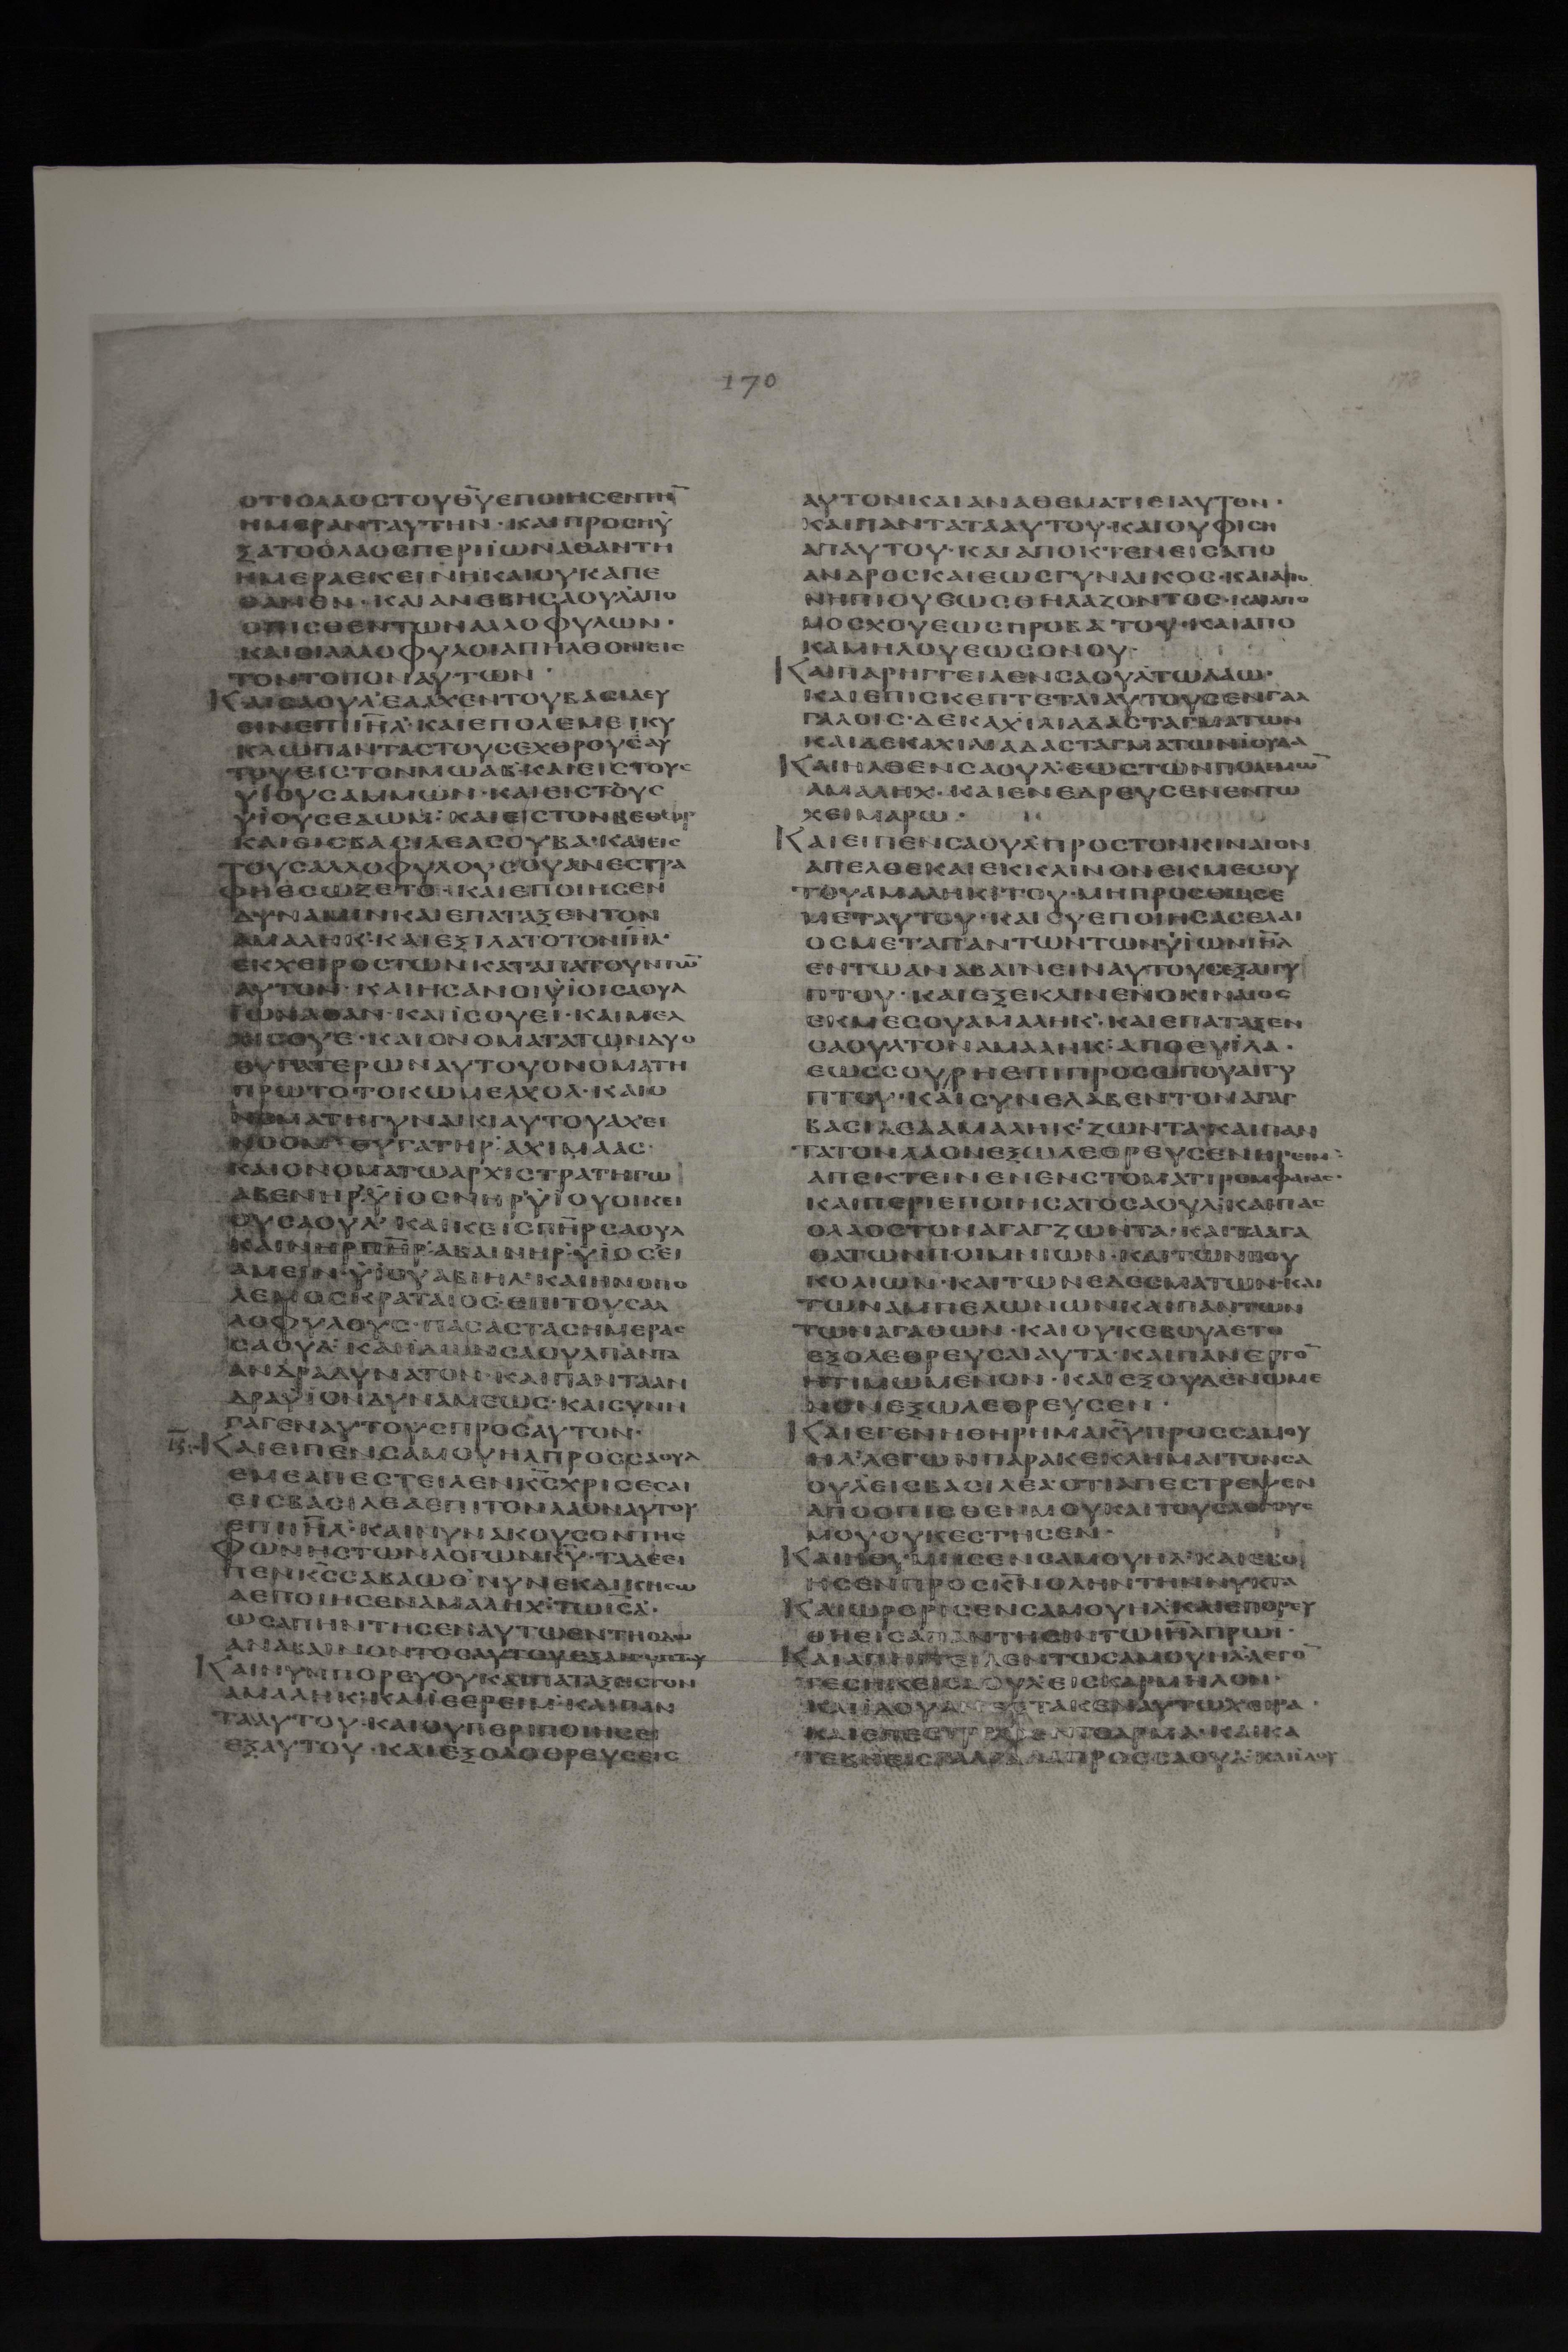 170
178
ΟΤΙΟΛΑΟΣΤΟΥΘ̅Υ̅ΕΠΟΙΗΣΕΝΤΗ̅
ΗΜΕΡΑΝΤΑΥΤΗΝ·ΚΑΙΠΡΟΣΗΥ
ΞΑΤΟΟΛΑΟΣΠΕΡΙΙΩΝΑΘΑΝΤΗ
ΗΜΕΡΑΕΚΕΙΝΗΚΑΙΟΥΚΑΠΕ
ΘΑΝΕΝ·ΚΑΙΑΝΕΒΗΣΑΟΥΛΑΠΟ
ΟΠΙΣΘΕΝΤΩΝΑΛΛΟΦΥΛΩΝ·
ΚΑΙΟΙΑΛΛΟΦΥΛΟΙΑΠΗΛΘΟΝΕΙΣ
ΤΟΝΤΟΠΟΝΑΥΤΩΝ·
ΚΑΙΣΑΟΥΛΕΛΑΧΕΝΤΟΥΒΑΣΙΛΕΥ
ΕΙΝΕΠΙΙ̅Η̅Λ̅·ΚΑΙΕΠΟΛΕΜΕΙΚΥ
ΚΛΩΠΑΝΤΑΣΤΟΥΣΕΧΘΡΟΥΣΑΥ
ΤΟΥΕΙΣΤΟΝΜΩΑΒ·ΚΑΙΕΙΣΤΟΥΣ
ΥΙΟΥΣΑΜΜΩΝ·ΚΑΙΕΙΣΤΟΥΣ
ΥΙΟΥΣΕΔΩΜ·ΚΑΙΕΙΣΤΟΝΒΕΘΕΩΡ
ΚΑΙΕΙΣΒΑΣΙΛΕΑΣΟΥΒΑ·ΚΑΙΕΙΣ
ΤΟΥΣΑΛΛΟΦΥΛΟΥΣΟΥΑΝΕΣΤΡΑ
ΦΗΕΣΩΖΕΤΟ·ΚΑΙΕΠΟΙΗΣΕΝ
ΔΥΝΑΜΙΝΚΑΙΕΠΑΤΑΞΕΝΤΟΝ
ΑΜΑΛΗΚ·ΚΑΙΕΞΙΛΑΤΟΤΟΝΙ̅Η̅Λ̅·
ΕΚΧΕΙΡΟΣΤΩΝΚΑΤΑΠΑΤΟΥΝΤΩ̅
ΑΥΤΟΝ·ΚΑΙΗΣΑΝΟΙΥΙΟΙΣΑΟΥΛ
ΙΩΝΑΘΑΝ·ΚΑΙΙΣΟΥΕΙ·ΚΑΙΜΕΛ
ΧΙΣΟΥΕ·ΚΑΙΟΝΟΜΑΤΑΤΩΝΔΥΟ
ΘΥΓΑΤΕΡΩΝΑΥΤΟΥΟΝΟΜΑΤΗ
ΠΡΩΤΟΤΟΚΩΜΕΛΧΟΛ·ΚΑΙΟ
ΝΟΜΑΤΗΓΥΝΑΙΚΙΑΥΤΟΥΑΧΕΙ
ΝΟΟΜ·ΘΥΓΑΤΗΡ·ΑΧΙΜΑΑΣ·
ΚΑΙΟΝΟΜΑΤΩΑΡΧΙΣΤΡΑΤΗΓΩ
ΑΒΕΝΗΡ·ΥΙΟΣΝΗΡ·ΥΙΟΥΟΙΚΕΙ
ΟΥΣΑΟΥΛ·ΚΑΙΚΕΙΣΠ̅Η̅Ρ̅ΣΑΟΥΛ
ΚΑΙΝΗΡΠ̅Η̅Ρ̅·ΑΒΑΙΝΗΡ·ΥΙΟΣΕΙ
ΑΜΕΙΝ·ΥΙΟΥΑΒΙΗΛ·ΚΑΙΗΝΟΠΟ
ΛΕΜΟΣΚΡΑΤΑΙΟΣ·ΕΠΙΤΟΥΣΑΛ
ΛΟΦΥΛΟΥΣ·ΠΑΣΑΣΤΑΣΗΜΕΡΑΣ
ΣΑΟΥΛ·ΚΑΙΙΔΩΝΣΑΟΥΛΠΑΝΤΑ
ΑΝΔΡΑΔΥΝΑΤΟΝ·ΚΑΙΠΑΝΤΑΑΝ
ΔΡΑΥΙΟΝΔΥΝΑΜΕΩΣ·ΚΑΙΣΥΝΗ
ΓΑΓΕΝΑΥΤΟΥΣΠΡΟΣΑΥΤΟΝ·
ΚΑΙΕΙΠΕΝΣΑΜΟΥΗΛΠΡΟΣΣΑΟΥΛ
ΕΜΕΑΠΕΣΤΕΙΛΕΝΚ̅Σ̅ΧΡΙΣΕΣΑΙ
ΕΙΣΒΑΣΙΛΕΑΕΠΙΤΟΝΛΑΟΝΑΥΤΟΥ
ΕΠΙΙ̅Η̅Λ̅·ΚΑΙΝΥΝΑΚΟΥΣΟΝΤΗΣ
ΦΩΝΗΣΤΩΝΛΟΓΩΝΚ̅Υ̅·ΤΑΔΕΕΙ
ΠΕΝΚ̅Σ̅ΣΑΒΑΩΘ·ΝΥΝΕΚΔΙΚΗΣΩ
ΑΕΠΟΙΗΣΕΝΑΜΑΛΗΧ·ΤΩΙ̅Σ̅Λ̅·
ΩΣΑΠΗΝΤΗΣΕΝΑΥΤΩΕΝΤΗΟΔΩ
ΑΝΑΒΑΙΝΟΝΤΟΣΑΥΤΟΥΕΞΑΙΓΥΠΤΟΥ
ΚΑΙΝΥΝΠΟΡΕΥΟΥΚΑΙΠΑΤΑΞΕΙΣΤΟΝ
ΑΜΑΛΗΚ·ΚΑΙΙΕΡΕΙΜ·ΚΑΙΠΑΝ
ΤΑΑΥΤΟΥ·ΚΑΙΟΥΠΕΡΙΠΟΙΗΣΕΙ
ΕΞΑΥΤΟΥ·ΚΑΙΕΞΟΛΟΘΡΕΥΣΕΙΣ
ΑΥΤΟΝΚΑΙΑΝΑΘΕΜΑΤΙΕΙΑΥΤΟΝ·
ΚΑΙΠΑΝΤΑΤΑΑΥΤΟΥ·ΚΑΙΟΥΦΙΣΗ
ΑΠΑΥΤΟΥ·ΚΑΙΑΠΟΚΤΕΝΕΙΣΑΠΟ
ΑΝΔΡΟΣΚΑΙΕΩΣΓΥΝΑΙΚΟΣ·ΚΑΙΑΠΟ
ΝΗΠΙΟΥΕΩΣΘΗΛΑΖΟΝΤΟΣ·ΚΑΙΑΠΟ
ΜΟΣΧΟΥΕΩΣΠΡΟΒΑΤΟΥ·ΚΑΙΑΠΟ
ΚΑΜΗΛΟΥΕΩΣΟΝΟΥ·
ΚΑΙΠΑΡΗΓΓΕΙΛΕΝΣΑΟΥΛΤΩΛΑΩ·
ΚΑΙΕΠΙΣΚΕΠΤΕΤΑΙΑΥΤΟΥΣΕΝΓΑΛ
ΓΑΛΟΙΣ·ΔΕΚΑΧΙΛΙΑΔΑΣΤΑΓΜΑΤΩΝ
ΚΑΙΔΕΚΑΧΙΛΙΑΔΑΣΤΑΓΜΑΤΩΝΙΟΥΔΑ
ΚΑΙΗΛΘΕΝΣΑΟΥΛ·ΕΩΣΤΩΝΠΟΛΕΜΩ̅
ΑΜΑΛΗΧ·ΚΑΙΕΝΕΔΡΕΥΣΕΝΕΝΤΩ
ΧΕΙΜΑΡΩ·
ΚΑΙΕΙΠΕΝΣΑΟΥΛΠΡΟΣΤΟΝΚΙΝΑΙΟΝ
ΑΠΕΛΘΕΚΑΙΕΚΚΛΙΝΟΝΕΚΜΕΣΟΥ
ΤΟΥΑΜΑΛΗΚΙΤΟΥ·ΜΗΠΡΟΣΘΩΣΕ
ΜΕΤΑΥΤΟΥ·ΚΑΙΣΥΕΠΟΙΗΣΑΣΕΛΑΙ
ΟΣΜΕΤΑΠΑΝΤΩΝΤΩΝΥΙΩΝΙ̅Η̅Λ̅
ΕΝΤΩΑΝΑΒΑΙΝΕΙΝΑΥΤΟΥΣΕΞΑΙΓΥ
ΠΤΟΥ·ΚΑΙΕΞΕΚΛΙΝΕΝΟΚΙΝΑΙΟΣ
ΕΚΜΕΣΟΥΑΜΑΛΗΚ·ΚΑΙΕΠΑΤΑΞΕΝ
ΣΑΟΥΛΤΟΝΑΜΑΛΗΚ·ΑΠΟΕΥΙΛΑ·
ΕΩΣΣΟΥΡΗΕΠΙΠΡΟΣΩΠΟΥΑΙΓΥ
ΠΤΟΥ·ΚΑΙΣΥΝΕΛΑΒΕΝΤΟΝΑΓΑΓ
ΒΑΣΙΛΕΑΑΜΑΛΗΚ·ΖΩΝΤΑ·ΚΑΙΠΑΝ
ΤΑΤΟΝΛΑΟΝΕΞΩΛΕΘΡΕΥΣΕΝΗΡΕΙΜ·
ΑΠΕΚΤΕΙΝΕΝΕΝΣΤΟΜΑΤΙΡΟΜΦΑΙΑΣ·
ΚΑΙΠΕΡΙΕΠΟΙΗΣΑΤΟΣΑΟΥΛ·ΚΑΙΠΑΣ
ΟΛΑΟΣΤΟΝΑΓΑΓΖΩΝΤΑ·ΚΑΙΤΑΑΓΑ
ΘΑΤΩΝΠΟΙΜΝΙΩΝ·ΚΑΙΤΩΝΒΟΥ
ΚΟΛΙΩΝ·ΚΑΙΤΩΝΕΔΕΣΜΑΤΩΝ·ΚΑΙ
ΤΩΝΑΜΠΕΛΩΝΩΝΚΑΙΠΑΝΤΩΝ
ΤΩΝΑΓΑΘΩΝ·ΚΑΙΟΥΚΕΒΟΥΛΕΤΟ
ΕΞΟΛΕΘΡΕΥΣΑΙΑΥΤΑ·ΚΑΙΠΑΝΕΡΓΟ̅
ΗΤΙΜΩΜΕΝΟΝ·ΚΑΙΕΞΟΥΔΕΝΩΜΕ
ΝΟΝΕΞΩΛΕΘΡΕΥΣΕΝ·
ΚΑΙΕΓΕΝΗΘΗΡΗΜΑΚ̅Υ̅ΠΡΟΣΣΑΜΟΥ
ΗΛ·ΛΕΓΩΝΠΑΡΑΚΕΚΛΗΜΑΙΤΟΝΣΑ
ΟΥΛΕΙΣΒΑΣΙΛΕΑ·ΟΤΙΑΠΕΣΤΡΕΨΕΝ
ΑΠΟΟΠΙΣΘΕΝΜΟΥΚΑΙΤΟΥΣΛΟΓΟΥΣ
ΜΟΥΟΥΚΕΣΤΗΣΕΝ·
ΚΑΙΗΘΥΜΗΣΕΝΣΑΜΟΥΗΛ·ΚΑΙΕΒΟ
ΗΣΕΝΠΡΟΣΚ̅Ν̅ΟΛΗΝΤΗΝΝΥΚΤΑ
ΚΑΙΩΡΘΡΙΣΕΝΣΑΜΟΥΗΛ·ΚΑΙΕΠΟΡΕΥ
ΘΗΕΙΣΑΠΑΝΤΗΣΙΝΤΩΙ̅Η̅Λ̅ΠΡΩΙ·
ΚΑΙΑΠΗΓΓΕΙΛΕΝΤΩΣΑΜΟΥΗΛ·ΛΕΓΟ̅
ΤΕΣΗΚΕΙΣΑΟΥΛΕΙΣΚΑΡΜΗΛΟΝ·
ΚΑΙΙΔΟΥΑΝΕΣΤΑΚΕΝΑΥΤΩΧΕΙΡΑ·
ΚΑΙΕΠΕΣΤΡΕΨΕΝΤΟΑΡΜΑ·ΚΑΙΚΑ
ΤΕΒΗΕΙΣΓΑΛΓΑΛΑΠΡΟΣΣΑΟΥΛ·ΚΑΙΙΔΟΥ